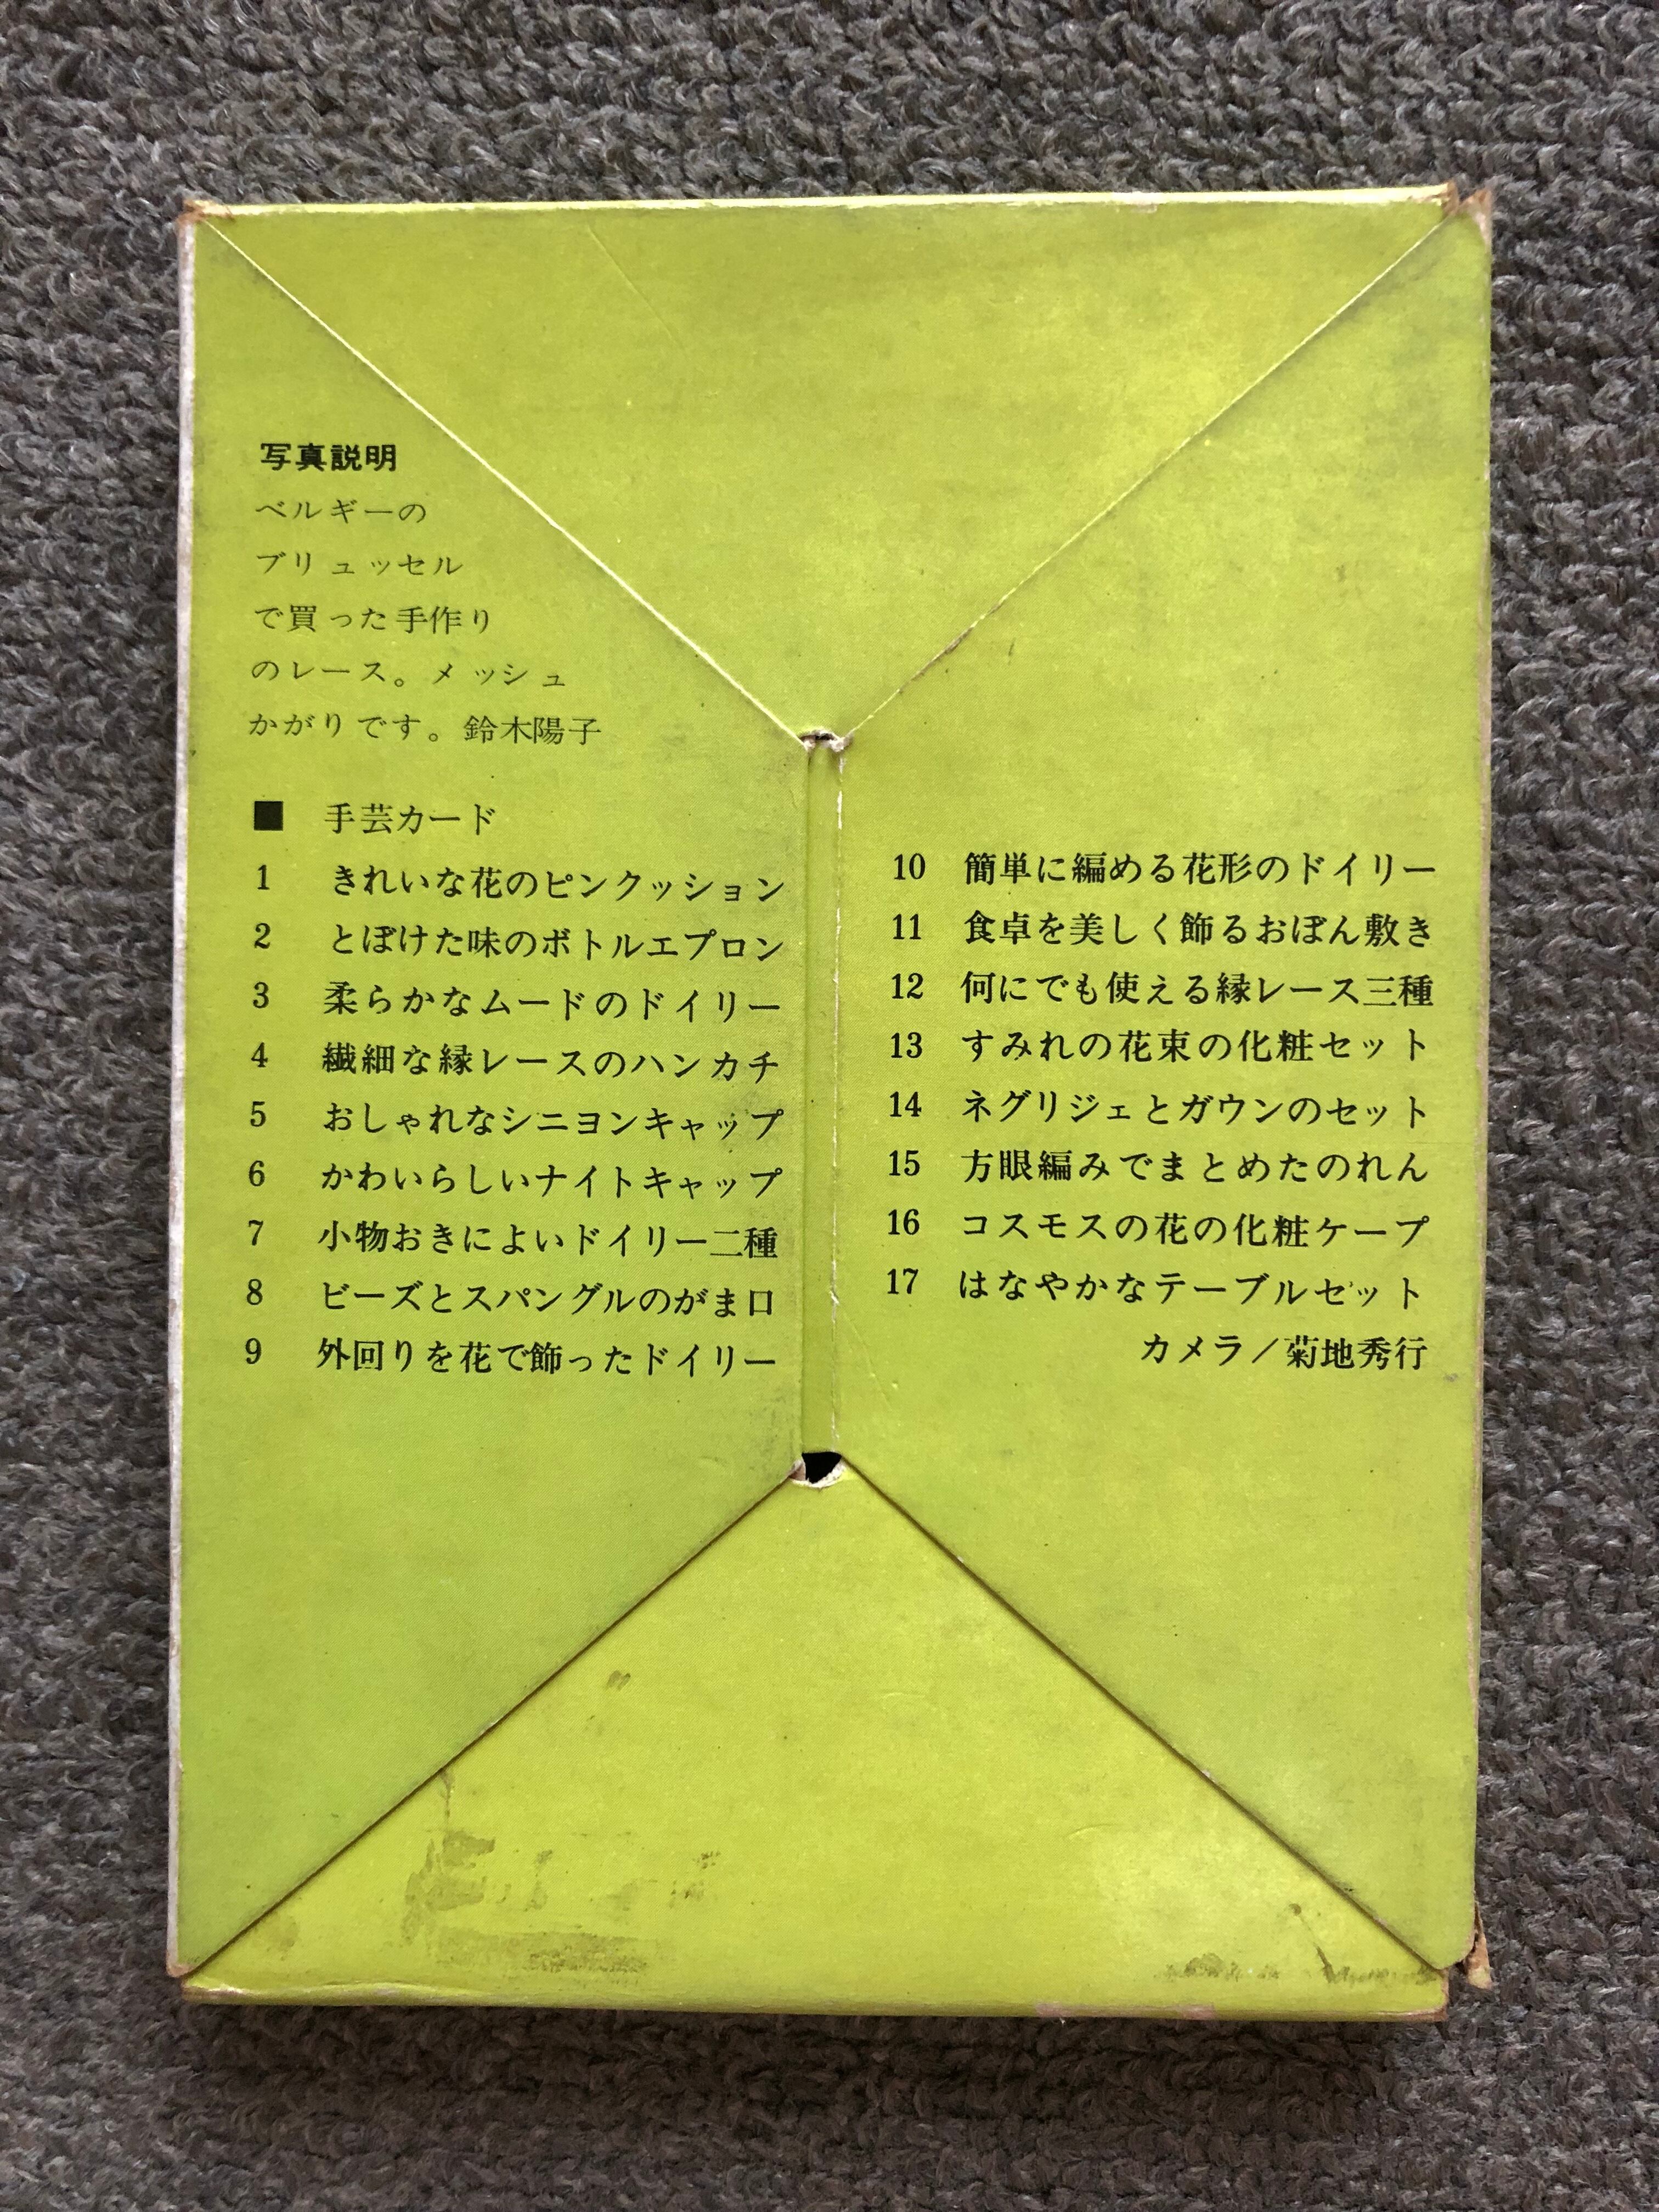 写真説明
ベルギーの
ブリュッセル
で買った手作り
のレース。メッシュ
かがりです。鈴木陽子
■ 手芸カード
1 きれいな花のピンクッション
2 とぼけた味のボトルエプロン
3 柔らかなムードのドイリー
4 繊細な縁レースのハンカチ
5 おしゃれなシニヨンキャップ
6 かわいらしいナイトキャップ
7 小物おきによいドイリー二種
8 ビーズとスパングルのがま口
9 外回りを花で飾ったドイリー
10 簡単に編める花形のドイリー
11 食卓を美しく飾るおぼん敷き
12 何にでも使える縁レース三種
13 すみれの花束の化粧セット
14 ネグリジェとガウンのセット
15 方眼編みでまとめたのれん
16 コスモスの花の化粧ケープ
17 はなやかなテーブルセット
カメラ／菊地秀行